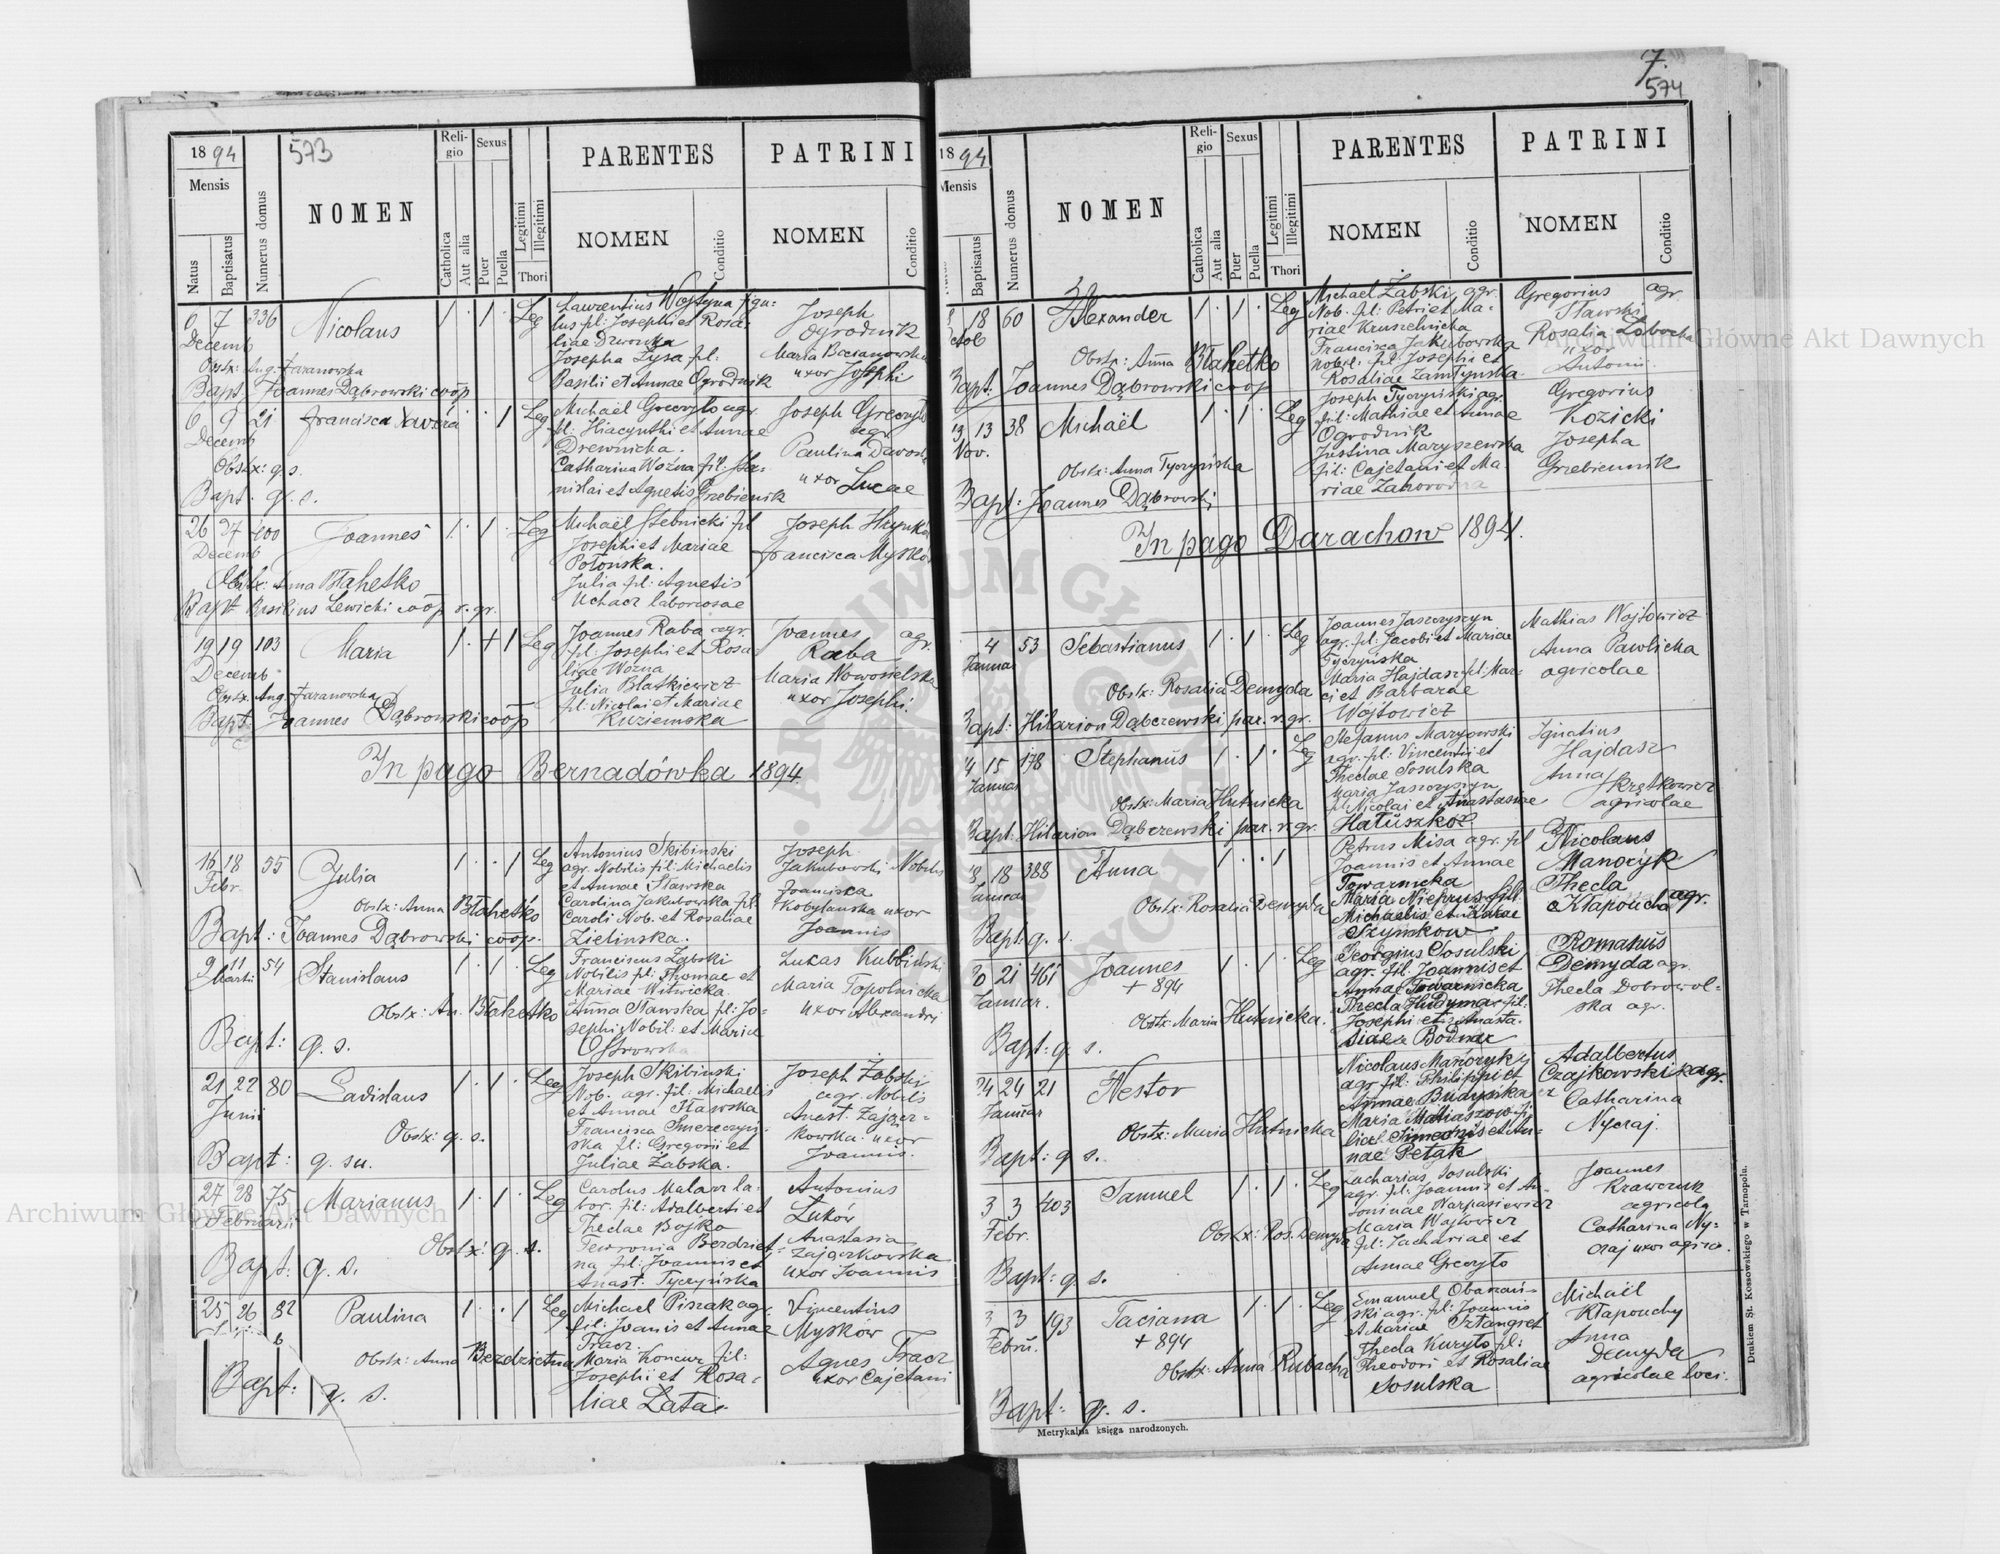 573
1894
Mensis
Natus
Baptisatus
Numerus domus
NOMEN
Religio
Catholica
Aut alia
Sexus
Puer
Puella
Legitimi
Illegitimi
Thori
PARENTES
NOMEN
Conditio
PATRINI
NOMEN
Conditio
6 7 336 Nicolaus 1 . 1 . Leg
Decemb
Laurentius Wojtyna figu-
lus fil: Josephi et Rosa-
liae Dworska
Josepha Łysa fil:
Basilii et Annae Ogrodnik
Joseph
Ogrodnik
Maria Bocianowska
uxor Josephi
Obstx: Aug. Taranowska
Bapt. Joannes Dąbrowski coop
6 9 21 Francisca Xavera 1 . . 1 Leg
Decemb
Michaël Greczyło agr
fil: Hiacynthi et Annae
Drewnicka.
Catharina Woźna fil: Sta-
nislai et Agnetis Grzebieniik
Joseph Greczyło
agr.
Paulina
uxor Lucae
Obstx: q. s.
Bapt. q. s.
26 27 400 Joannes 1 . 1 . Leg
Decemb
Michaël Stebnicki fil
Josephi et Mariae
Połońska.
Julia fil: Agnetis
Uchacz laboriosae
Joseph
Francisca
Obstx: Anna Błahetko
Bapt Basilius Lewicki coop r. gr.
19 19 103 Maria 1 . + 1 Leg
Decemb
Joannes Raba agr.
fil: Josephi et Rosa-
liae Woźna
Julia Blatkiewicz
fil: Nicolai et Mariae
Kuziemska
Joannes agr.
Raba
Maria Nowosielska
uxor Josephi.
Obstx. Aug. Taranowska
Bapt: Joannes Dąbrowski coop
In pago Bernadówka 1894.
16 18 55 Julia 1 . . 1 Leg
Febr.
Antonius Skibinski
agr. Nobilis fil: Michaelis
et Annae Sławska
Carolina Jakubowska fil:
Caroli Nob. et Rosaliae
Zielinska.
Joseph
Jakubowski Nobilis
Francisca
Kobylanska uxor
Joannis
Obstx: Anna Błahetko
Bapt: Joannes Dąbrowski coop.
9 11 54 Stanislaus 1 . 1 . Leg
Martii
Franciscus Żabski
Nobilis fil: Thomae et
Mariae Witwicka.
Anna Sławska fil: Jo-
sephi Nobil. et Maria
Ostrowska
Lukas Kubbinski
Maria Topolnicka
uxor Alexandri
Obstx: An. Błahetko
Bapt: q. s.
21 22 80 Ladislaus 1 . 1 . Leg
Junii
Joseph Skibinski
Nob. agr. fil. Michaelis
et Annae Sławska
Francisca Smereczyń-
ska fil: Gregorii et
Juliae Żabska.
Joseph Żabski
agr. Nobilis
Anast. Zającz-
kowska uxor
Joannis.
Obstx: q. s.
Bapt: q. su.
27 28 75 Marianus 1 . 1 . Leg
Februarii
Carolus Malarz la-
bor. fil: Adalberti et
Theclae Bojko
Fewronia Berdziet-
na fil: Joannis et
Anast. Tyczyńska
Antonius
Luków
Anastasia
Zajączkowska
uxor Joannis
Obstx: q. s.
Bapt: q. s.
25 26 82 Paulina 1 . . 1 Leg
Michael Piszak agr.
fil: Joanis et Annae
Tracz.
Maria Koncur fil:
Josephi et Rosa-
liae Łataj.
Vincentius
Myśków
Agnes Tracz
uxor Cajetani
Obstx: Anna Berdzietna
Bapt: q. s.
7.
574
1894
Mensis
Baptisatus
Numerus domus
NOMEN
Religio
Catholica
Aut alia
Sexus
Puer
Puella
Legitimi
Illegitimi
Thori
PARENTES
NOMEN
Conditio
PATRINI
NOMEN
Conditio
18 60 Alexander 1 . 1 . Leg
Michael Żabski agr.
Nob. fil: Petri et Ma-
riae Kruszelnicka
Francisca Jakubowska
nobil. fil: Josephi et
Rosaliae Zamłyńska.
Gregorius agr.
Sławski
Rosalia
uxor
Antonii.
Obstx: Anna Błahetko
Bapt. Joannes Dąbrowski coop
13 13 38 Michaël 1 . 1 . Leg
Nov.
Joseph Tyczyński agr.
fil: Mathiae et Annae
Ogrodnik
Justina Maryszewska
fil: Cajetani et Ma-
riae Zahorodna
Gregorius
Kozicki
Josepha
Grzebiennik
Obstx: Anna Tyczyńska
Bapt: Joannes Dąbrowski
In pago Darachow 1894.
4 53 Sebastianus 1 . 1 . Leg
Januar
Joannes Jaszczyszyn
agr. fil: Jacobi et Mariae
Tyczyńska
Maria Hajdasz fil: Mar-
ci et Barbarae
Wojtowicz
Mathias Wojtowicz
Anna Pawlicka
agricolae
Obstx: Rosalia Demyda
Bapt: Hilarion Dąbczewski par. r. gr.
14 15 178 Stephanus 1 . 1 . Leg
Januar
Stefanus Marysowski
agr. fil: Vincentii et
Theclae Sosulska
Maria Jaszczyszyn
fil: Nicolai et Anastasiae
Hałuszko.
Ignatius
Hajdasz
Anna
Krętkowicz
agricolae
Obstx: Maria Hutnicka
Bapt: Hilarion Dąbczewski par. r. gr.
18 18 388 Anna 1 . . 1
Januar
Petrus Misa agr. fil
Joannis et Annae
Towarnicka
Maria Nieprus fil:
Michaelis et Annae
Szymkow
Nicolaus
Manoryk
Thecla
Kłapoucha agr.
Obstx: Rosalia Demyda
Bapt: q. s.
20 21 461 Joannes 1 . 1 . Leg
+ 894
Januar.
Georgius Sosulski
agr. fil. Joannis et
Annae Towarnicka
Thecla Hudyma fil:
Josephi et Anasta-
siae Bodnar
Romanus
Demyda agr.
Thecla Dobrowol-
ska agr.
Obstx: Maria Hutnicka.
Bapt: q. s.
24 24 21 Nestor
Januar
Nicolaus Manoryk
agr. fil: Philippi et
Annae Budynska
Maria Matiaszow fi-
lia Simeonis et An-
nae Petak
Adalbertus
Czajkowski agr.
et
Catharina
Nycraj.
Obstx: Maria Hutnicka
Bapt: q. s.
3 3 403 Samuel 1 . 1 . Leg
Febr.
Zacharias Sosulski
agr. fil: Joannis et An-
toninae Karpasiewicz
Maria Wojtowicz
fil: Zachariae et
Annae Greczyło
Joannes
Krawczuk
agricola
Catharina Ny-
craj uxor agric.
Obstx: Ros. Demyda
Bapt: q. s.
3 3 193 Taciana 1 . 1 . Leg
+ 894
Febru.
Emanuel Obazań-
ski agr. fil: Joannis
et Mariae Sztangret
Thecla Kuryło fil:
Theodori et Rosaliae
Sosulska
Michaël
Kłapouchy
Anna
Demyda
agricolae loci.
Obstx: Anna Rubacha
Bapt: q. s.
Metrykalna księga narodzonych.
Drukiem St. Kossowskiego w Tarnopolu.
Archiwum Główne Akt Dawnych
Archiwum Główne Akt Dawnych
ARCHIWUM GŁÓWNE AKT DAWNYCH